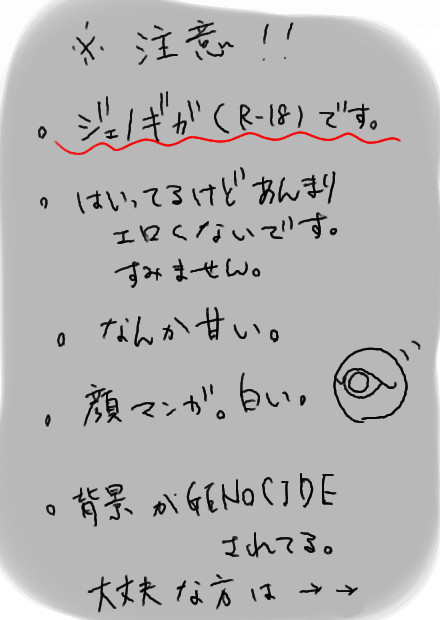 ※ 注意 !!
。ジェノギが(R-18)です。
。はいってるけどあんまり
エロくないです。
すみません。
。なんか甘い。
。顔マンガ。白い。
。背景がGENOCIDE
されてる。
大丈夫な方は→→